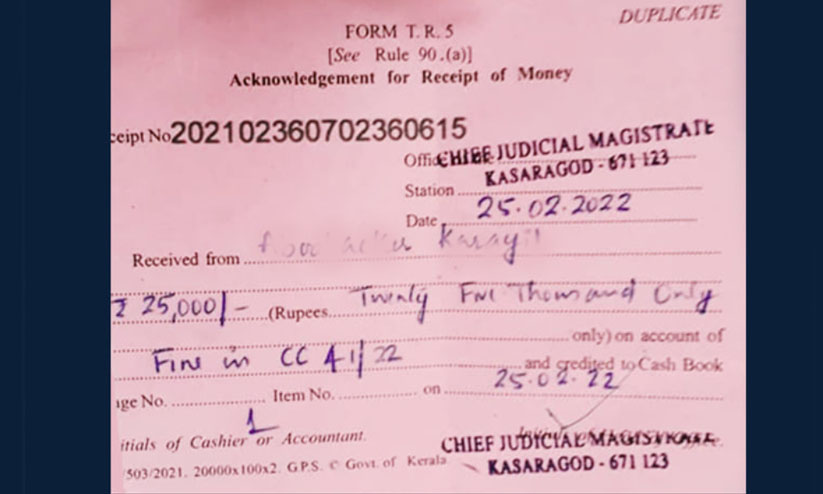 DUPLICATE
FORM T. R. 5
[See Rule 90.(a)]
Acknowledgement for Receipt of Money
ceipt No 202102360702360615
Office CHIEF JUDICIAL MAGISTRATE
KASARAGOD - 671 123
Station
Date 25.02.2022
Received from
₹ 25,000/- (Rupees Twenty Five Thousand Only
only) on account of
Fine in CC 41/22
and credited to Cash Book
age No. Item No. on 25.02.22
itials of Cashier or Accountant.
CHIEF JUDICIAL MAGISTRATE
503/2021. 20000x100x2. G.P.S. © Govt. of Kerala.
KASARAGOD - 671 123